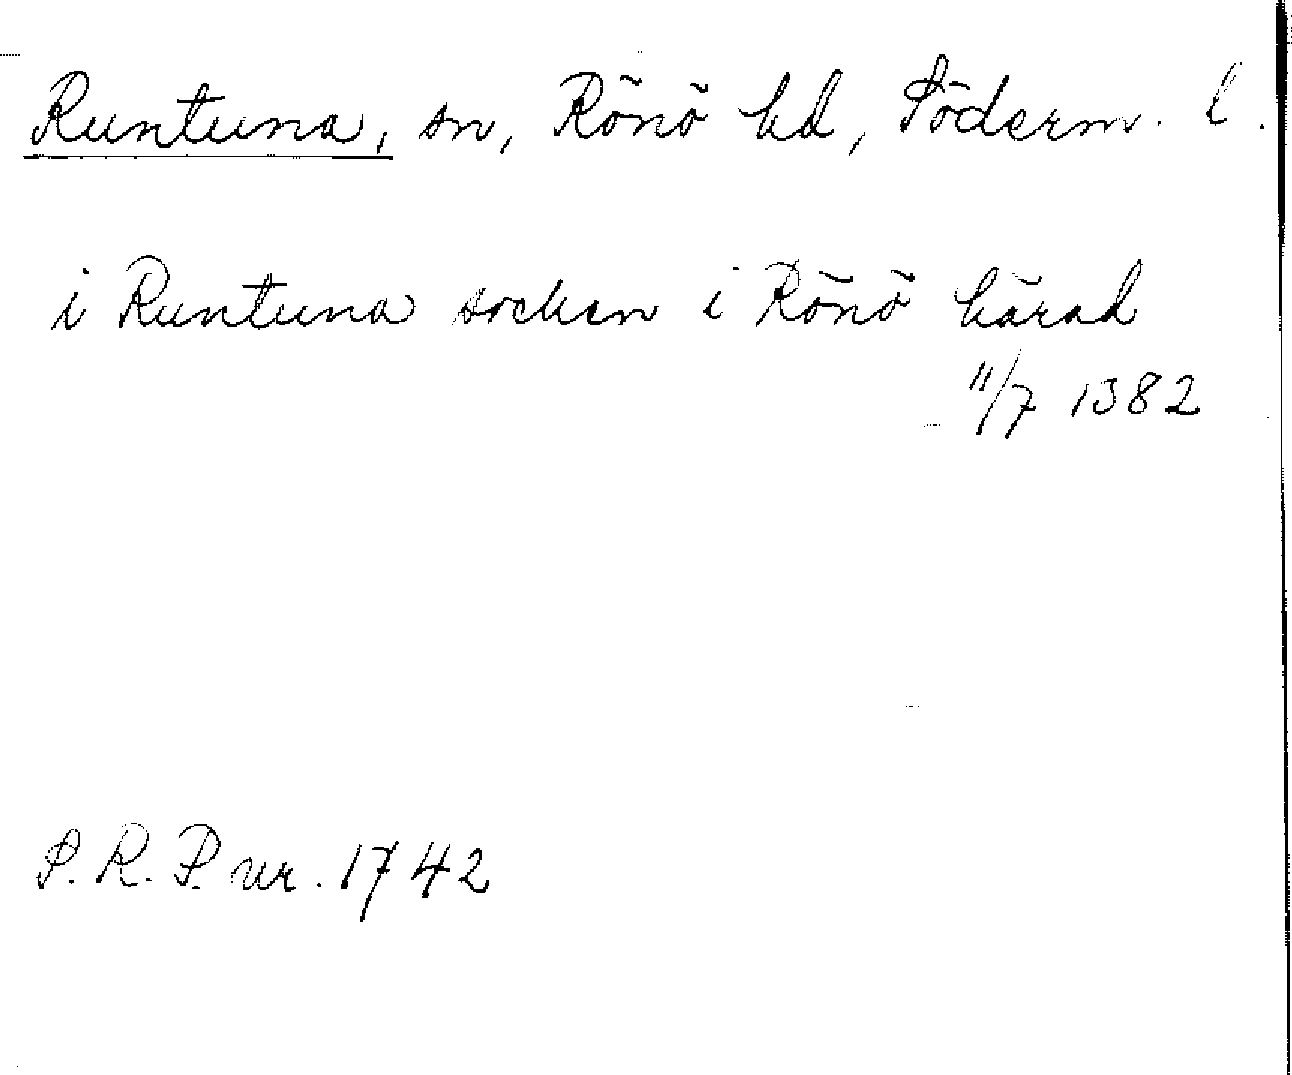 Runtuna, sn, Rönö hd, Söderm. l.
i Runtuna socken i Rönö härad
11/7 1382
S.R.P. nr. 1742